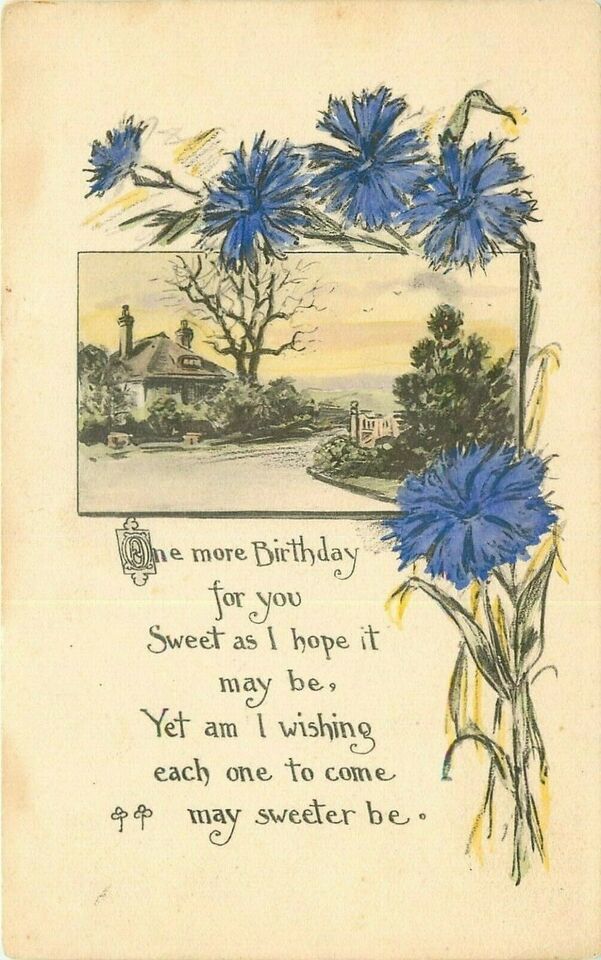 One more Birthday
for you
Sweet as I hope it
may be,
Yet am I wishing
each one to come
may sweeter be.